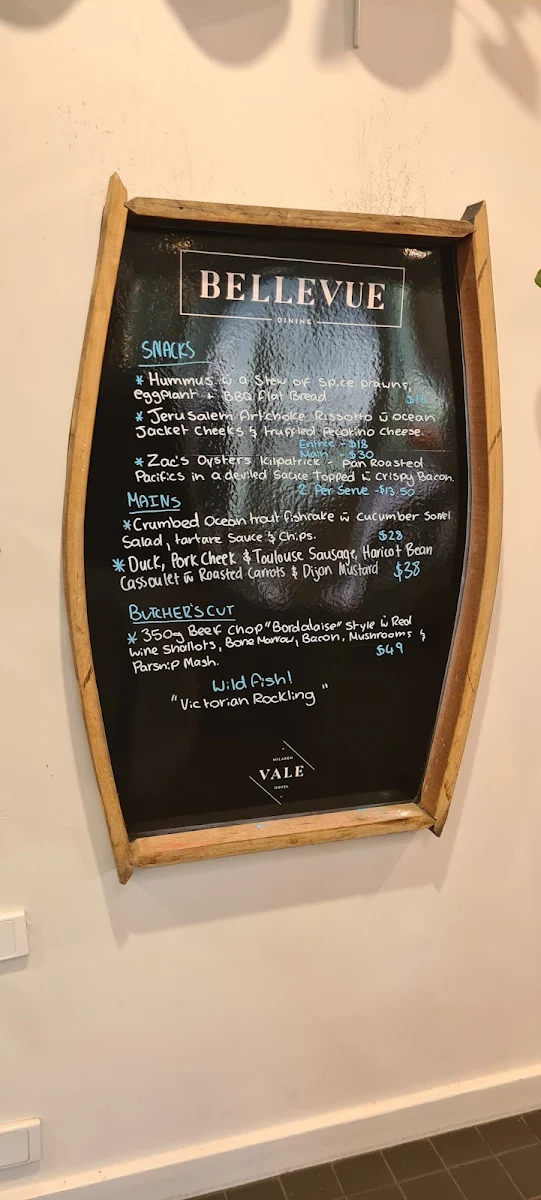 BELLEVUE
DINING
SNACKS
* Hummus w̄ a Stew of Spice prawns,
eggplant + BBQ flat Bread. $16
* Jerusalem Artichoke Rissotto w̄ ocean
Jacket Cheeks & truffled Pecorino Cheese.
Entree - $18
Main - $30
* Zac's Oysters Kilpatrick - Pan Roasted
Pacifics in a deviled Sauce Topped w̄ Crispy Bacon.
2 Per Serve - $13.50
MAINS
* Crumbed Ocean trout fishcake w̄ Cucumber Sorrel
Salad, tartare Sauce & Chips. $28
* Duck, Pork Cheek & Toulouse Sausage, Haricot Bean
Cassoulet w̄ Roasted Carrots & Dijon Mustard $38
BUTCHER'S CUT
* 350g Beef Chop "Bordalaise" Style w̄ Red
wine Shallots, Bone Marrow, Bacon, Mushrooms &
Parsnip Mash. $49
Wild fish!
"Victorian Rockling"
MCLAREN
VALE
HOTEL